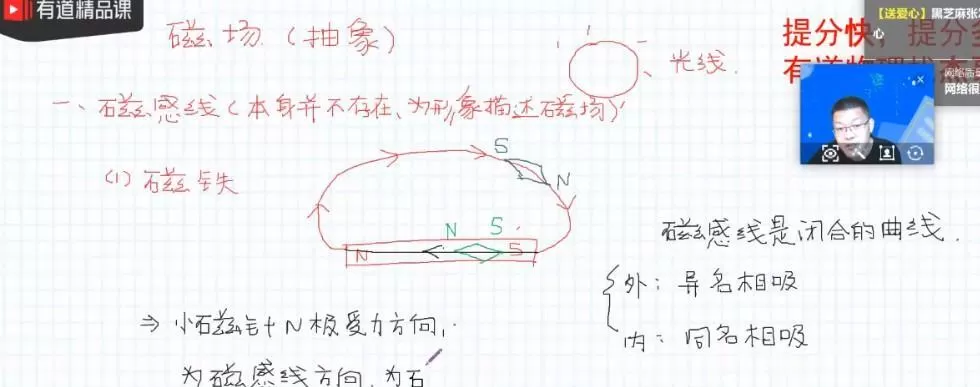 有道精品课
【送爱心】黑芝麻张
心
磁场(抽象)
提分快,提分
光线.
一、磁感线(本身并不存在、为形象描述磁场)
(1)磁铁
S
N
N S
N S
磁感线是闭合的曲线.
外:异名相吸
内:同名相吸
⇒ 小磁针N极受力方向,
为磁感线方向,为